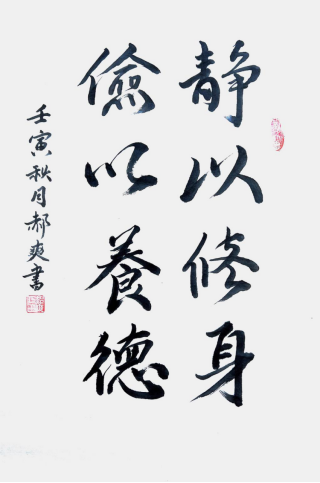 静以修身
儉以養德
壬寅秋月郝爽書